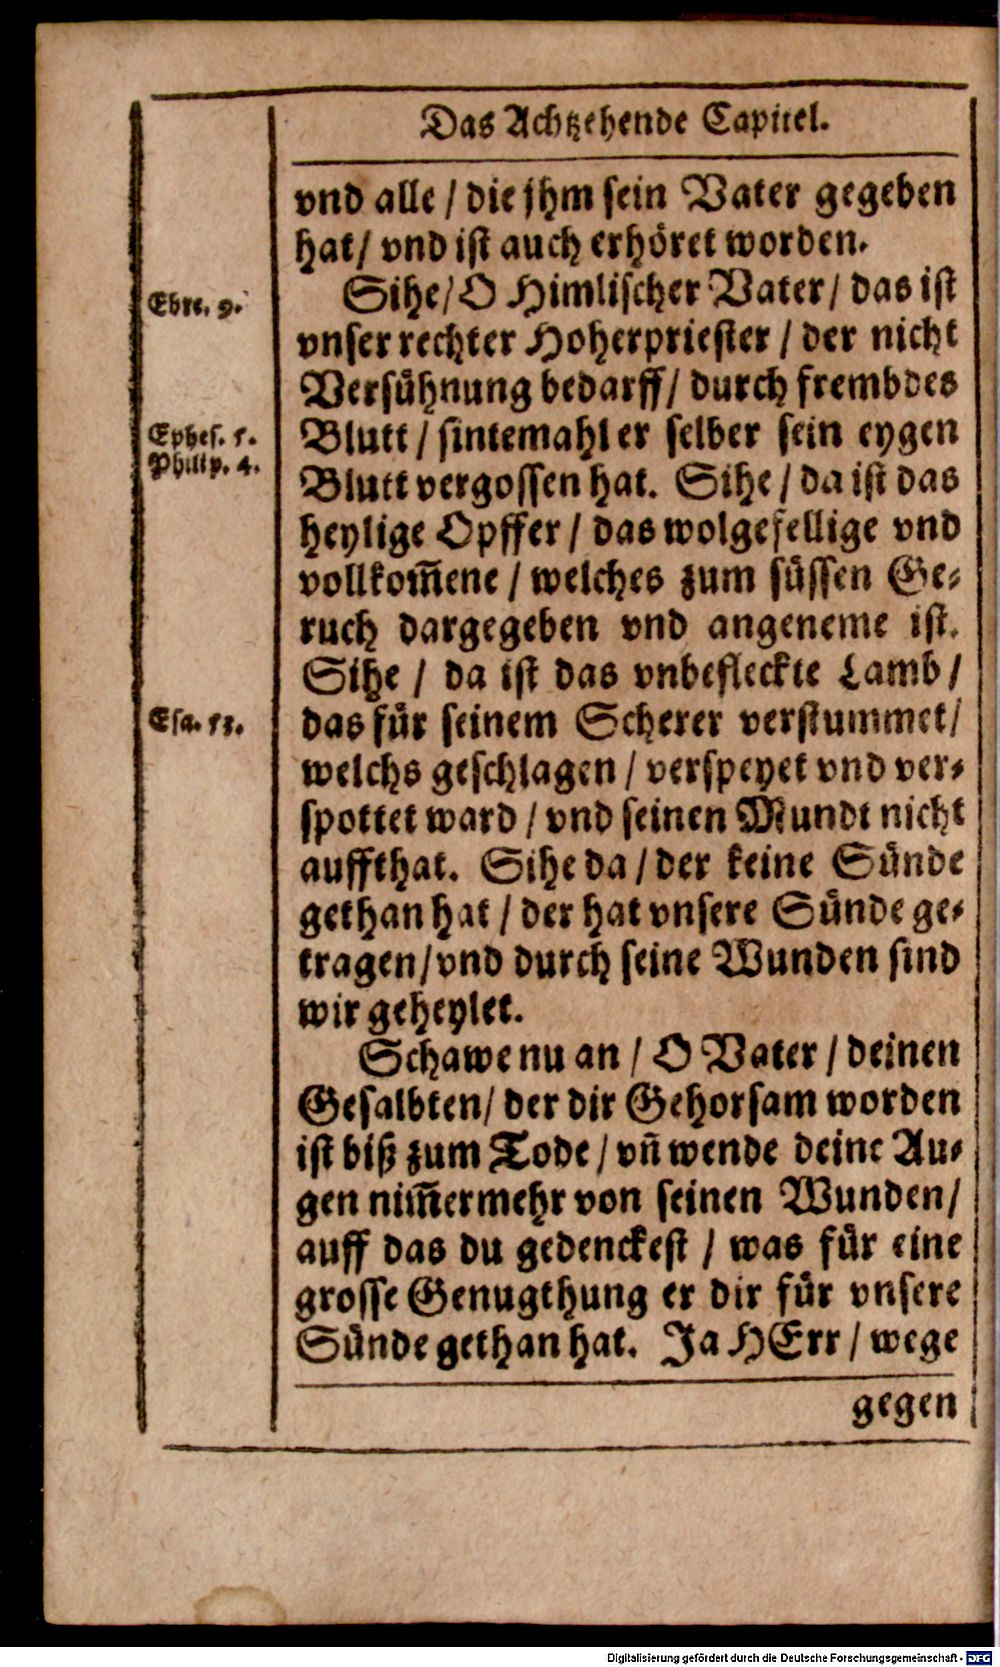 Das Achtzehende Capitel.
vnd alle / die jhm sein Vater gegeben
hat / vnd ist auch erhöret worden.
Ebre. 9.
Sihe / O Himlischer Vater / das ist
vnser rechter Hoherpriester / der nicht
Versühnung bedarff / durch frembdes
Ephes. 5.
Philip. 4.
Blutt / sintemahl er selber sein eygen
Blutt vergossen hat. Sihe / da ist das
heylige Opffer / das wolgefellige vnd
vollkom̃ene / welches zum süssen Ge-
ruch dargegeben vnd angeneme ist.
Sihe / da ist das vnbefleckte Lamb /
Esa. 53.
das für seinem Scherer verstummet /
welchs geschlagen / verspeyet vnd ver-
spottet ward / vnd seinen Mundt nicht
auffthat. Sihe da / der keine Sünde
gethan hat / der hat vnsere Sünde ge-
tragen / vnd durch seine Wunden sind
wir geheylet.
Schawe nu an / O Vater / deinen
Gesalbten / der dir Gehorsam worden
ist biß zum Tode / vñ wende deine Au-
gen nim̃ermehr von seinen Wunden /
auff das du gedenckest / was für eine
grosse Genugthung er dir für vnsere
Sünde gethan hat. Ja HErr / wege
gegen
Digitalisierung gefördert durch die Deutsche Forschungsgemeinschaft - DFG